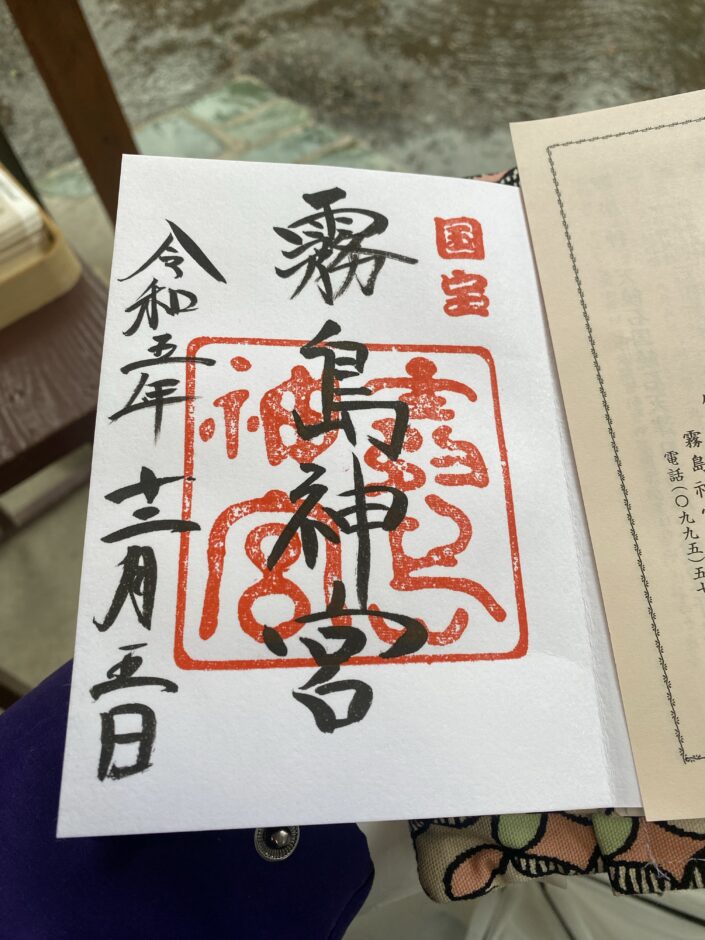 霧島神
電話(〇九九五)五
国宝
霧島神宮
霧島
神宮
令和五年十二月五日